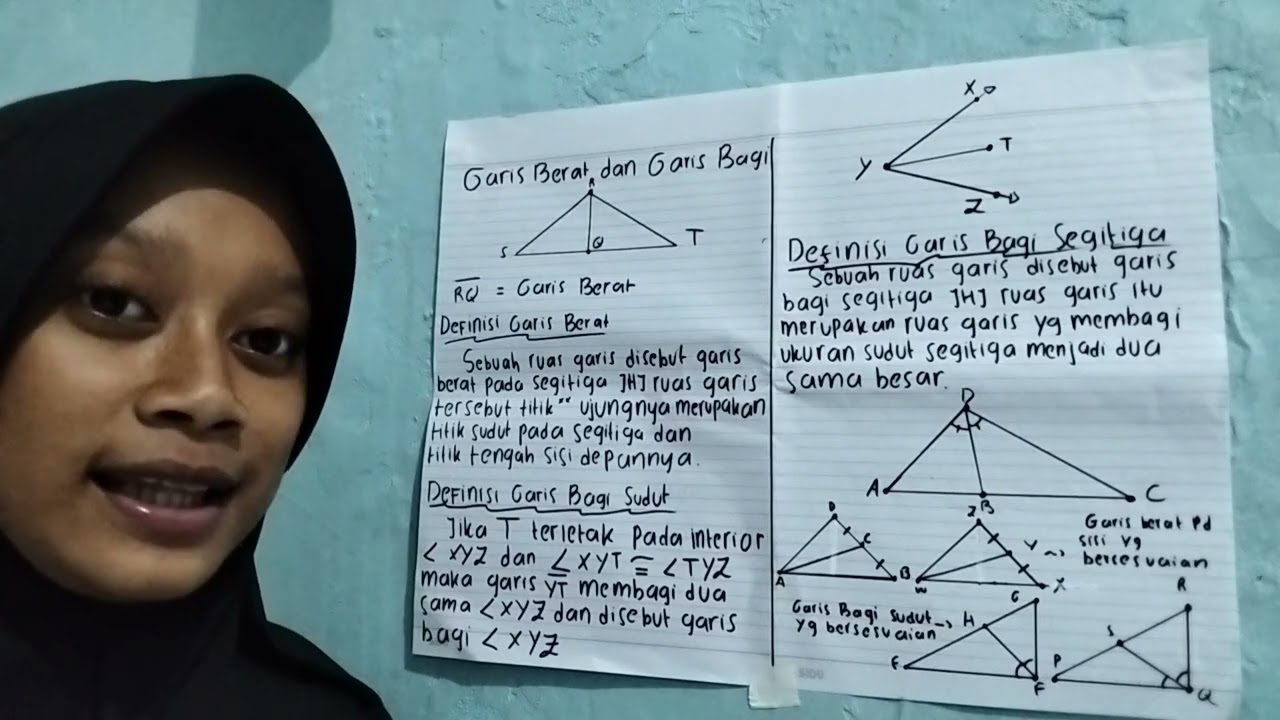 Garis Berat dan Garis Bagi
R
S
Q
T
RQ = Garis Berat
Definisi Garis Berat
Sebuah ruas garis disebut garis
berat pada segitiga JHJ ruas garis
tersebut titik" ujungnya merupakan
titik sudut pada segitiga dan
titik tengah sisi depannya.
Definisi Garis Bagi Sudut
Jika T terletak pada interior
∠XYZ dan ∠XYT ≅ ∠TYZ
maka garis YT membagi dua
sama ∠XYZ dan disebut garis
bagi ∠XYZ
X
Y
T
Z
Definisi Garis Bagi Segitiga
Sebuah ruas garis disebut garis
bagi segitiga JHJ ruas garis itu
merupakan ruas garis yg membagi
ukuran sudut segitiga menjadi dua
sama besar.
D
A
B
C
D
C
A
B
Z
Y
W
X
Garis berat pd
sisi yg
bersesuaian
Garis Bagi sudut
yg bersesuaian
G
H
E
F
R
S
P
Q
SIDU